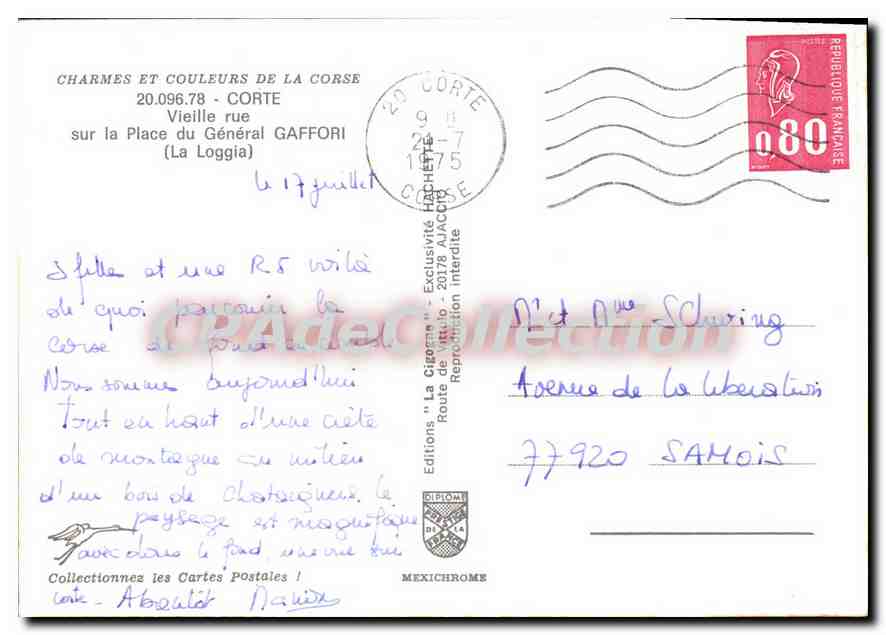 CHARMES ET COULEURS DE LA CORSE
20.096.78 - CORTE
Vieille rue
sur la Place du Général GAFFORI
(La Loggia)
le 17 juillet
3 filles et une R5 voilà
de quoi parcourir la
Corse de fond en comble
Nous sommes aujourd'hui
Tout en haut d'une crète
de montagne au milieu
d'un bois de Chataigners. le
paysage est magnifique
avec dans le fond, une vue sur
Corte - A bientôt
Collectionnez les Cartes Postales !
Editions " La Cigogne " - Exclusivité HACHETTE
Route de Vittulo - 20178 AJACCIO
Reproduction interdite
DIPLOME
PRESTIGE
DE LA
FRANCE
MEXICHROME
20 CORTE
9 H
21-7
1975
CORSE
POSTES
REPUBLIQUE FRANÇAISE
0,80
Mr et Mme Schwing
Avenue de la libération
77920 SAMOIS
CPAdeCollection